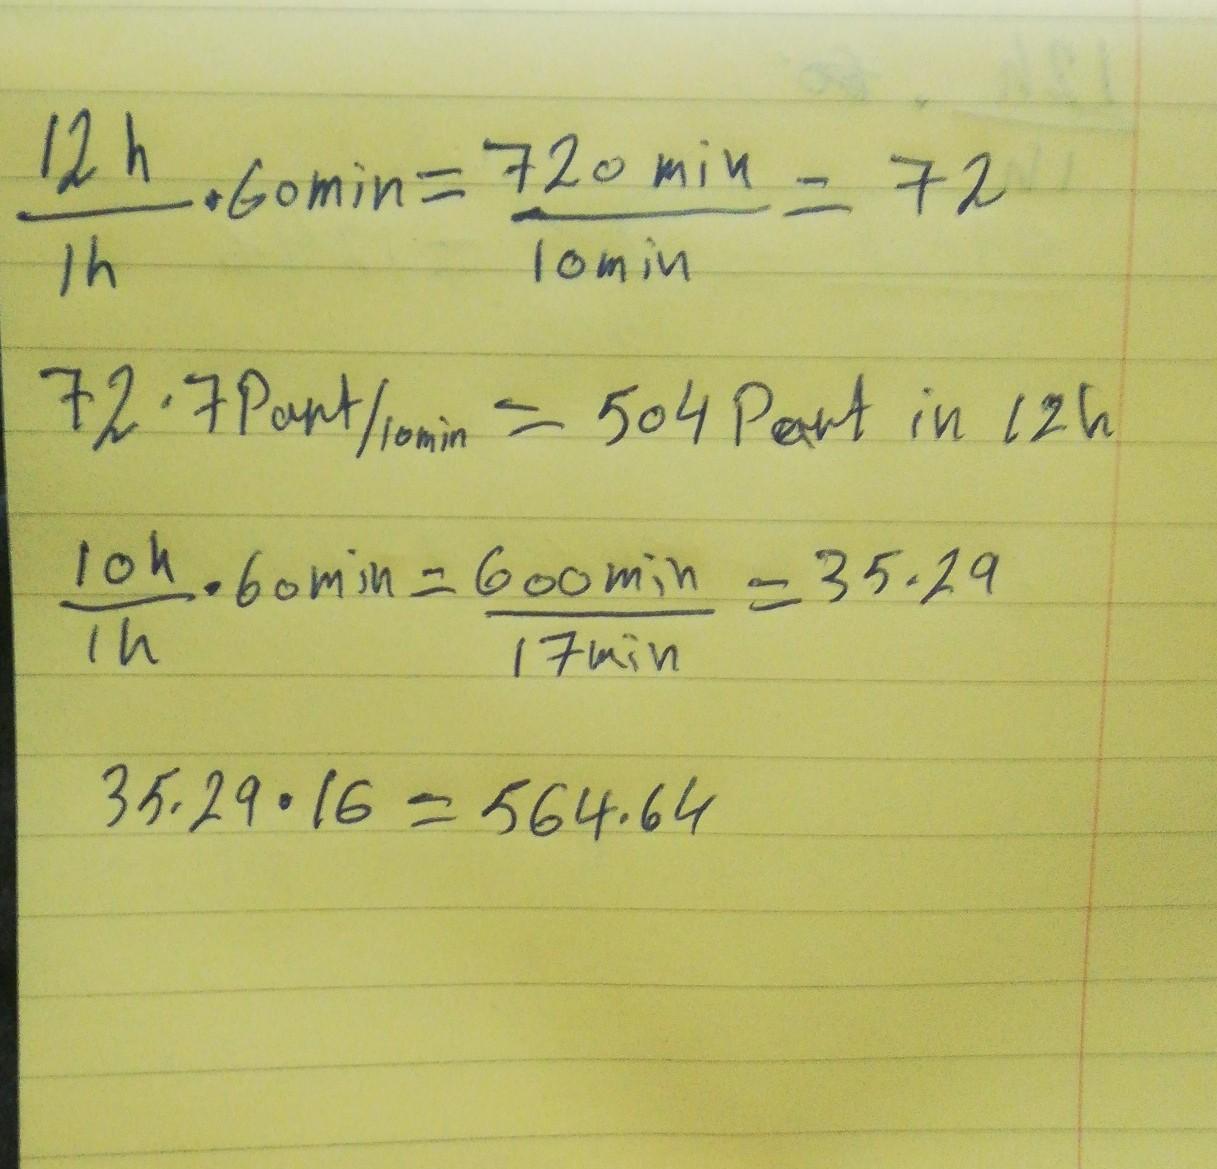 12h/1h · 60min = 720 min/10min = 72
72 · 7 Part/10min = 504 Part in 12h
10h/1h · 60min = 600min/17min = 35.29
35.29 · 16 = 564.64